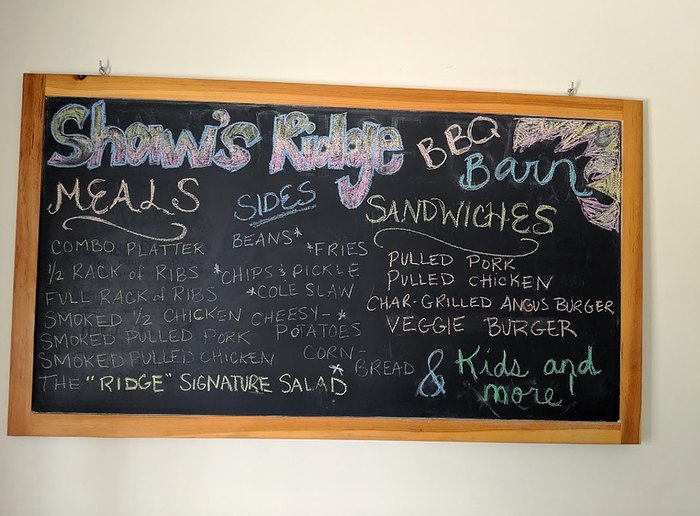 Shaw's Ridge BBQ Barn
MEALS
COMBO PLATTER
1/2 RACK of RIBS
FULL RACK of RIBS
SMOKED 1/2 CHICKEN
SMOKED PULLED PORK
SMOKED PULLED CHICKEN
THE "RIDGE" SIGNATURE SALAD
SIDES
BEANS*
*FRIES
*CHIPS & PICKLE
*COLE SLAW
CHEESY-*
POTATOES
CORN-
*BREAD
SANDWICHES
PULLED PORK
PULLED CHICKEN
CHAR-GRILLED ANGUS BURGER
VEGGIE BURGER
& Kids and
more